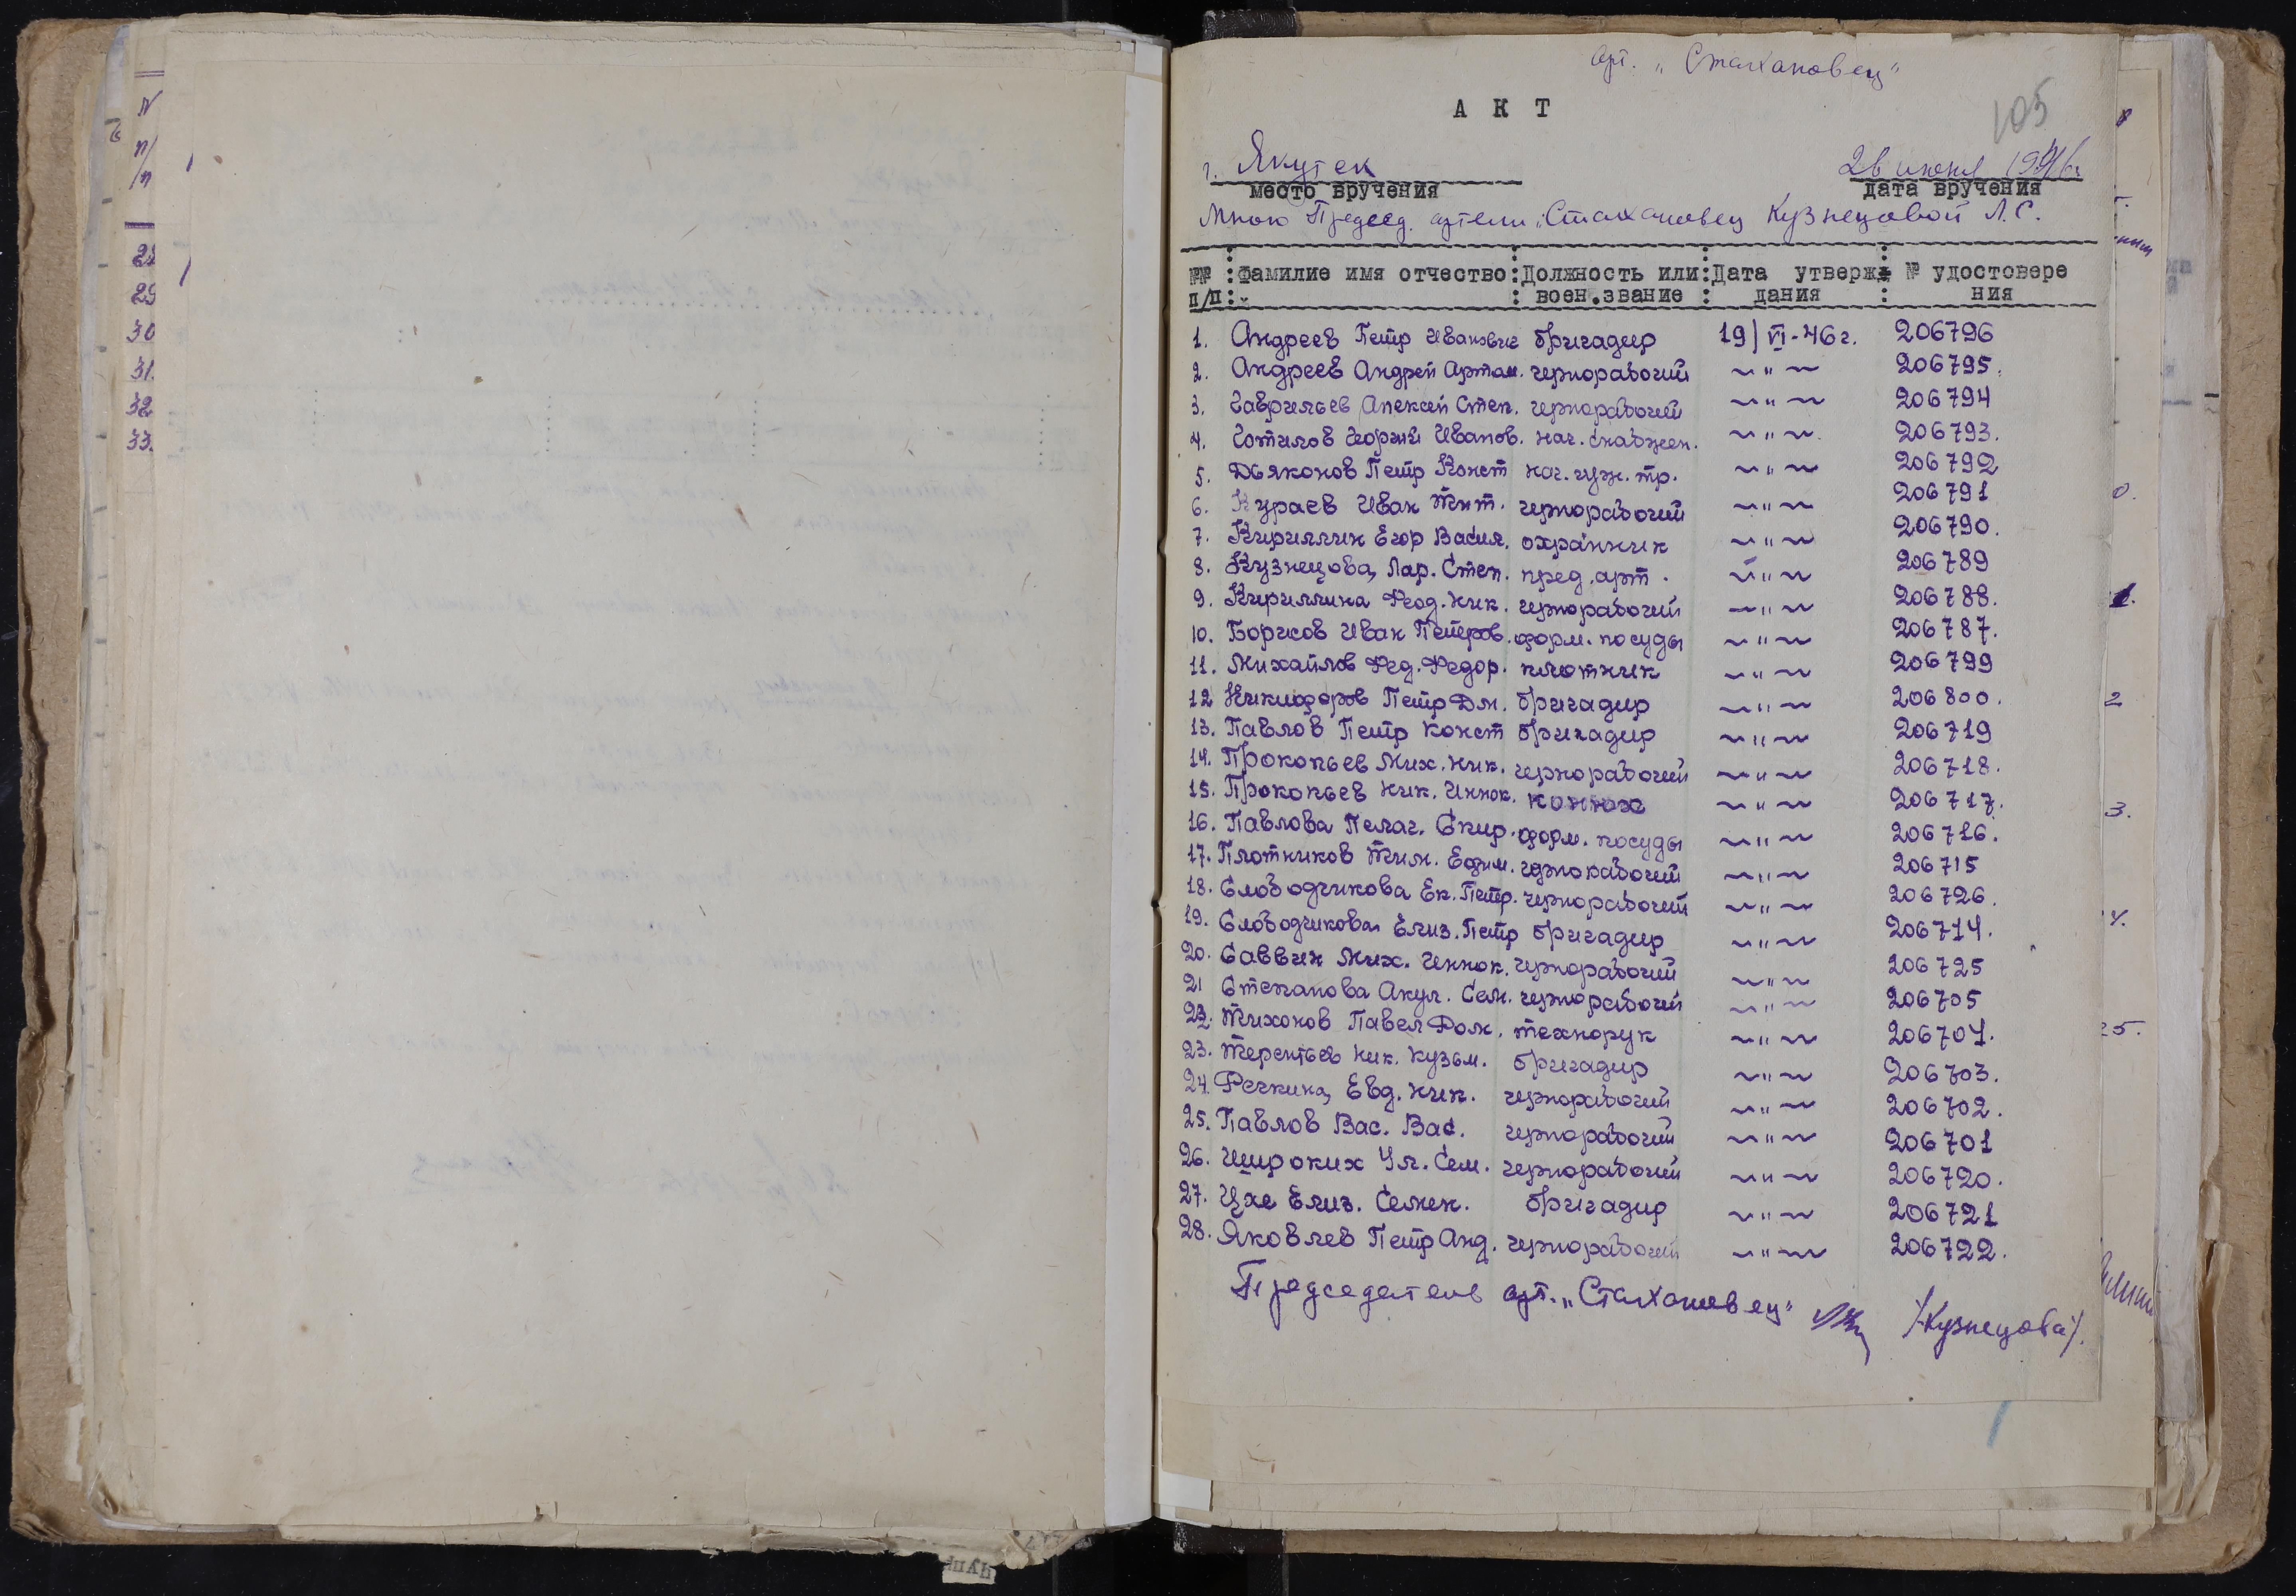 N
п/п
28
29
30
31.
32
33.
арт. „Стахановец"
105
А К Т
г. Якутск
26 июня 1946 г.
место вручения
дата вручения
Мною Председ. артели „Стахановец Кузнецовой Л.С.
№№ п/п : Фамилие имя отчество : Должность или воен.звание : Дата утвержд дания : № удостовере ния
1. Андреев Петр Иванович бригадир 19/VI-46г. 206796
2. Андреев Андрей Артам. чернорабочий ~"~ 206795.
3. Гаврильев Алексей Степ. чернорабочий ~"~ 206794
4. Готилов Георгий Иванов. нач. снабжен. ~"~ 206793.
5. Дьяконов Петр Конст нач. гуж. тр. ~"~ 206792
6. Кураев Иван Тит. чернорабочий ~"~ 206791
7. Кириллин Егор Васил. охранник ~"~ 206790.
8. Кузнецова Лар. Степ. пред. арт. ~"~ 206789
9. Кириллина Феод. Ник. чернорабочий ~"~ 206788.
10. Борисов Иван Петров. форм. посуды ~"~ 206787.
11. Михайлов Фед. Федор. плотник ~"~ 206799
12 Никифоров Петр Дм. бригадир ~"~ 206800.
13. Павлов Петр Конст бригадир ~"~ 206719
14. Прокопьев Мих. Ник. чернорабочий ~"~ 206718.
15. Прокопьев Ник. Иннок. конюх ~"~ 206717.
16. Павлова Пелаг. Спир. форм. посуды ~"~ 206716.
17. Плотников Тим. Ефим. чернорабочий ~"~ 206715
18. Слободчикова Ек. Петр. чернорабочий ~"~ 206726.
19. Слободчикова Елиз. Петр бригадир ~"~ 206714.
20. Саввин Мих. Иннок. чернорабочий ~"~ 206725
21 Степанова Акул. Сем. чернорабочий ~"~ 206705
22. Тихонов Павел Ром. технорук ~"~ 206704.
23. Терентьев Ник. Кузьм. бригадир ~"~ 206703.
24. Речкина, Евд. Ник. чернорабочий ~"~ 206702.
25. Павлов Вас. Вас. чернорабочий ~"~ 206701
26. Широких Ул. Сем. чернорабочий ~"~ 206720.
27. Цхе Елиз. Семен. бригадир ~"~ 206721
28. Яковлев Петр Анд. чернорабочий ~"~ 206722.
Председатель арт. „Стахановец" /Кузнецова/.